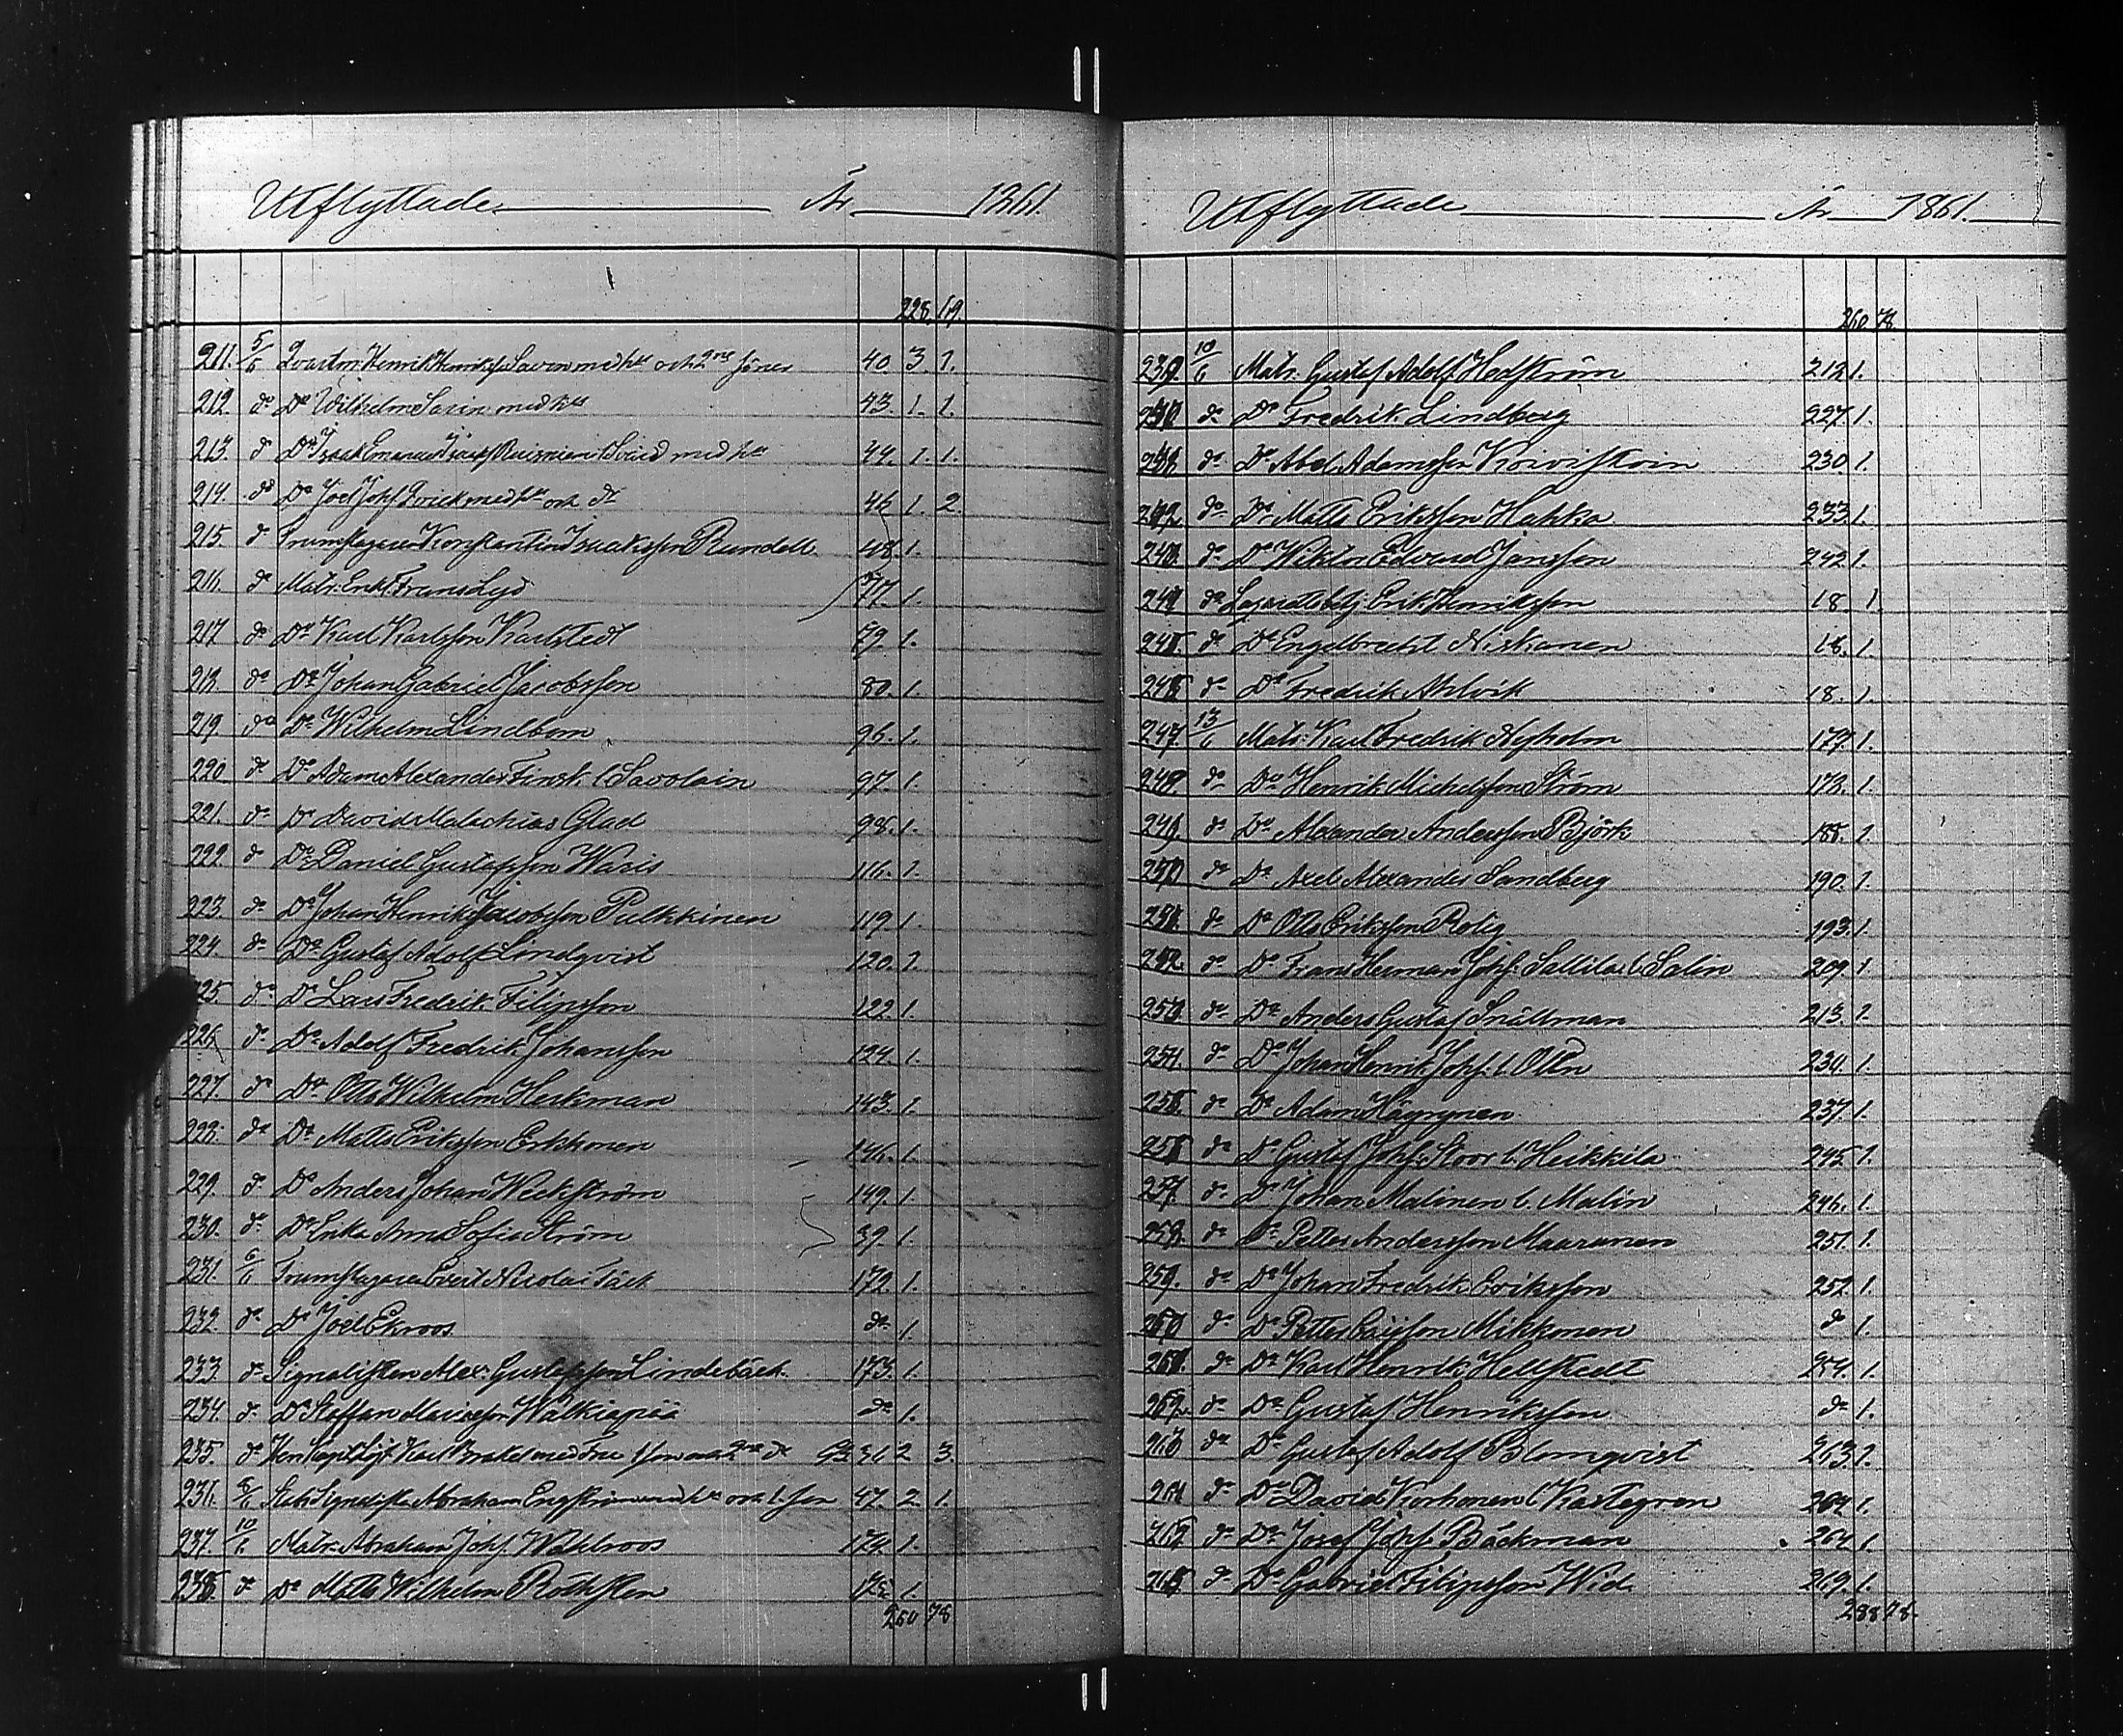 Utflyttade År 1861.
228. 69.
211. 5/6 Qvartm Henrik Henrikss Savon med hu och 2ne söner 40. 3. 1.
212. do Do Wilhelm Sarin med hu 43. 1. 1.
213. do Do Isaak Emanuel Isaakss med hu 44. 1. 1.
214. do Do Joel Johss med hu och dr 46. 1. 2.
215. do Trumslagaren Konstantin Isaaksson Rundell 48. 1.
216. do Matr. Enkl. Frans Lyd 77. 1.
217. do Do Karl Karlsson Karlstedt 79. 1.
218. do Do Johan Gabriel Jacobsson 80. 1.
219. do Do Wilhelm Lindbom 96. 1.
220. do Do Adam Alexander Finsk l. Savolain 97. 1.
221. do Do David Malachias Glad 98. 1.
222. do Do Daniel Gustafsson Waris 116. 1.
223. do Do Johan Henrik Jacobsson Pulkkinen 119. 1.
224. do Do Gustaf Adolf Lindqvist 120. 1.
225. do Do Lars Fredrik Filipsson 122. 1.
226. do Do Adolf Fredrik Johansson 124. 1.
227. do Do Otto Wilhelm Heikman 143. 1.
228. do Do Matts Eriksson Erkkonen 146. 1.
229. do Do Anders Johan Weckström 149. 1.
230. do Do Erika Anna Sofia Ström 39. 1.
231. 6/6 Trumslagaren Evert Nicolai Täck 172. 1.
232. do Do Joel Ekroos do 1.
233. do Signalisten Alex. Gustafsson Lindebäck 173. 1.
234. do Do Staffan Mariasson Walkiapää do 1.
235. do Herr Kapt. Karl Brakel med Fru 1 son och 2ne dr 36 2 3.
236. 8/6 Stabs Signalisten Abraham Engström med hu och 1. son 47. 2. 1.
237. 10/6 Matr. Abraham Johss Wahlroos 174. 1.
238. do Do Matts Wilhelm Rothsten 1.
260 78
Utflyttade År 1861.
260 78
239. 10/6 Matr. Gustaf Adolf Hodström 212 1.
240 do Do Fredrik Lindberg 227. 1.
241 do Do Abel Adamsson Koivistoin 230 1.
242. do Do Matts Eriksson Hakka 233. 1.
243. do Do Wiktor Edvard Jansson 242 1.
244 do Lazarettsbetj. Erik Henriksson 18 1.
245. do Do Engelbrecht Niskanen 18. 1.
246 do Do Fredrik Ahlvik 18. 1.
247. 13/6 Matr. Karl Fredrik Nyholm 177. 1.
248. do Do Henrik Michelsson Ström 178. 1.
249. do Do Alexander Andersson Björk 188. 1.
250 do Do Axel Alexander Sandberg 190. 1.
251. do Do Otto Eriksson Rolig 193. 1.
252. do Do Frans Herman Johss. Sallila l. Salin 209 1
253. do Do Anders Gustaf Snällman 213. 1.
254. do Do Johan Henrik Johss. l. Ollin 234. 1.
255. do Do Adam Häyrynen 237. 1.
256 do Do Gustaf Johss. Stoor l. Heikkilä 245. 1.
257. do Do Johan Malinen l. Malin 246. 1.
258. do Do Petter Andersson Mauranen 251. 1.
259. do Do Johan Fredrik Eriksson 252. 1.
260 do Do Petter Mikkonen do 1.
261. do Do Karl Henrik Hellstedt 254. 1.
262. do Do Gustaf Henriksson do 1.
263 do Do Gustaf Adolf Blomqvist 263. 1.
264 do Do David Korhonen l Kastegren 264 1.
265 do Do Josef Johss. Bäckman 264 1.
266 do Do Gabriel Filipsson Wid. 269. 1.
288 78.